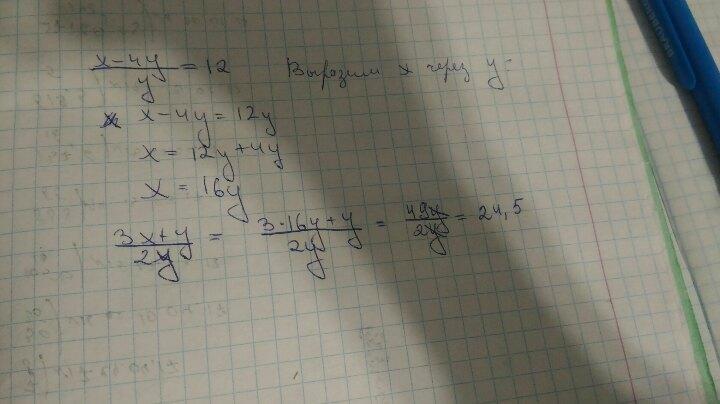 (x-4y)/y = 12 Выразим x через y:
x-4y=12y
x = 12y+4y
x = 16y
(3x+y)/(2y) = (3·16y+y)/(2y) = (49y)/(2y) = 24,5